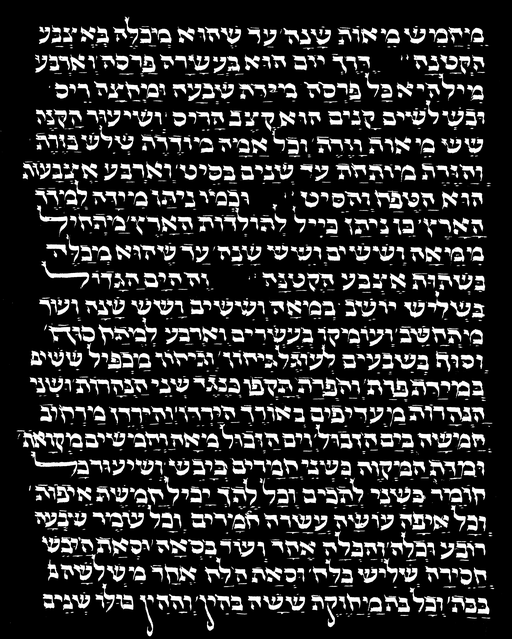 מיחמיש מיאות שנה עד שהוא מיכלה באיצבע
הקטנה דרך יום הוא בעשרה פרסה וארבע
מילהייא כל פרסה מירת שבעה ומחצה ריס
ובשלשים קנים הוא קצב הריס ושיעור הקנה
שש מיאות וזרה וכל אמה מודדת שלש בזרת
והזרת מותחת עד שנים בסיט וארבע איצבעות
הוא הטפח והסיט וכמו ניתן מידה למדד
הארץ בן ניתן כייל לתולדות הארץ מתחיל
ממאה וששים ושש שנה עד שהוא מכלה
בשהות איצבע הקטנה זה הים הגדול
בשליש יושב במאה וששים ושש שנה ועד
מתחשב ועומקו בעשרים וארבע למתח סוח
וסוח בשבעים לעוגל גיחוד וגיחוד מכפיל ששים
במירת פרת והפרת הקפו כנגד שני הנהרות ושני
הנהרות מעריפים באורך הירדן והירדן מרחוב
חמשה כים הזבול וים הזבול מאה וחמשים מקואת
ומדת המקוה בשני חמרים ביבש ושיעור כל
חומר כשני לתכים וכל לתך יכיל חמשת איפות
וכל איפה עושיה עשרה חמרים וכל עומר שבעה
רובע וכלה והכלה אחד ועוד בסאה וסאת היבש
חסידה שליש בלח וסאת הלח אחד משלשה
בבת וכל בת מיחזקת ששה בהין וההין כולו שנים